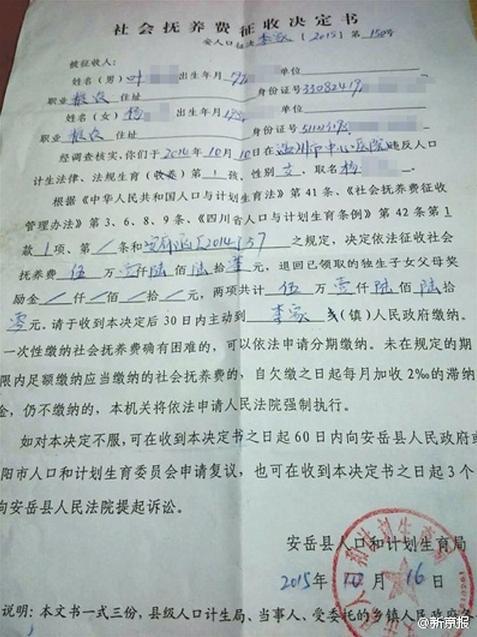 社会抚养费征收决定书
安人口征决李家〔2015〕第150号
被征收人：
姓名（男）叶 出生年月 单位
职业 农 住址 身份证号33082419
姓名（女）杨 出生年月 单位
职业 农 住址 身份证号
经调查核实，你们于2014年10月10日在 州市中心医院违反人口
计生法律、法规生育（收养）第1孩，性别女，取名杨
根据《中华人民共和国人口与计划生育法》第41条、《社会抚养费征收
管理办法》第3、6、8、9条、《四川省人口与计划生育条例》第42条第1
款1项、第/条和安 〔2014〕37之规定，决定依法征收社会
抚养费伍万壹仟陆佰陆拾零元，退回已领取的独生子女父母奖
励金/仟/佰/拾/元，两项共计伍万壹仟陆佰陆拾
零元。请于收到本决定后30日内主动到李家 （镇）人民政府缴纳。
一次性缴纳社会抚养费确有困难的，可以依法申请分期缴纳。未在规定的期
限内足额缴纳应当缴纳的社会抚养费的，自欠缴之日起每月加收2‰的滞纳
金，仍不缴纳的，本机关将依法申请人民法院强制执行。
如对本决定不服，可在收到本决定书之日起60日内向安岳县人民政府或
阳市人口和计划生育委员会申请复议，也可在收到本决定书之日起3个
向安岳县人民法院提起诉讼。
安岳县人口和计划生育局
2015年 月16日
说明：本文书一式三份，县级人口计生局、当事人、受委托的乡镇人民政府各
@新京报